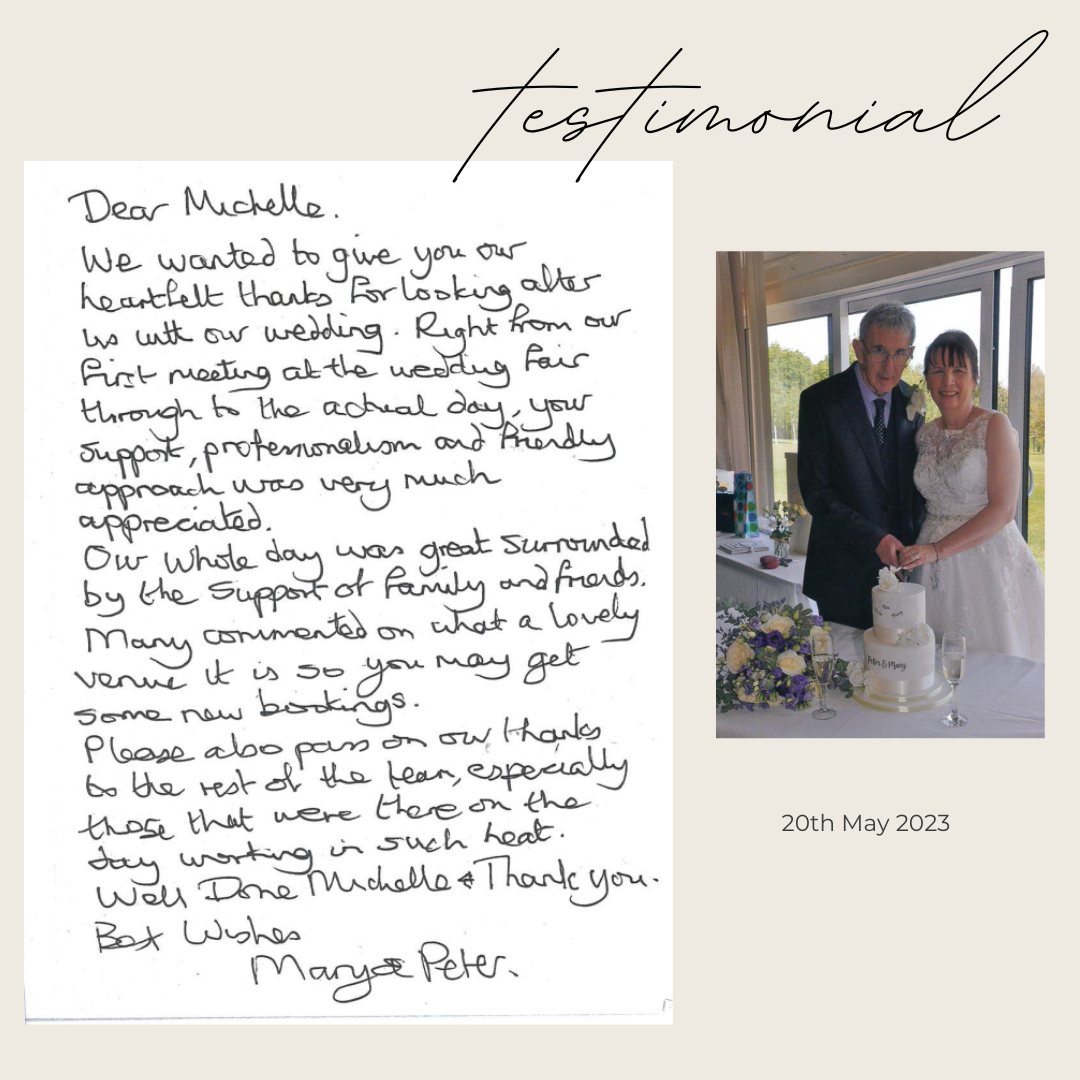 testimonial
Dear Michelle.
We wanted to give you our
heartfelt thanks for looking after
us with our wedding. Right from our
first meeting at the wedding fair
through to the actual day, your
support, professionalism and friendly
approach was very much
appreciated.
Our whole day was great surrounded
by the support of family and friends.
Many commented on what a lovely
venue it is so you may get
some new bookings.
Please also pass on our thanks
to the rest of the team, especially
those that were there on the
day working in such heat.
Well Done Michelle & Thank you.
Best Wishes
Mary & Peter.
Peter & Mary
20th May 2023